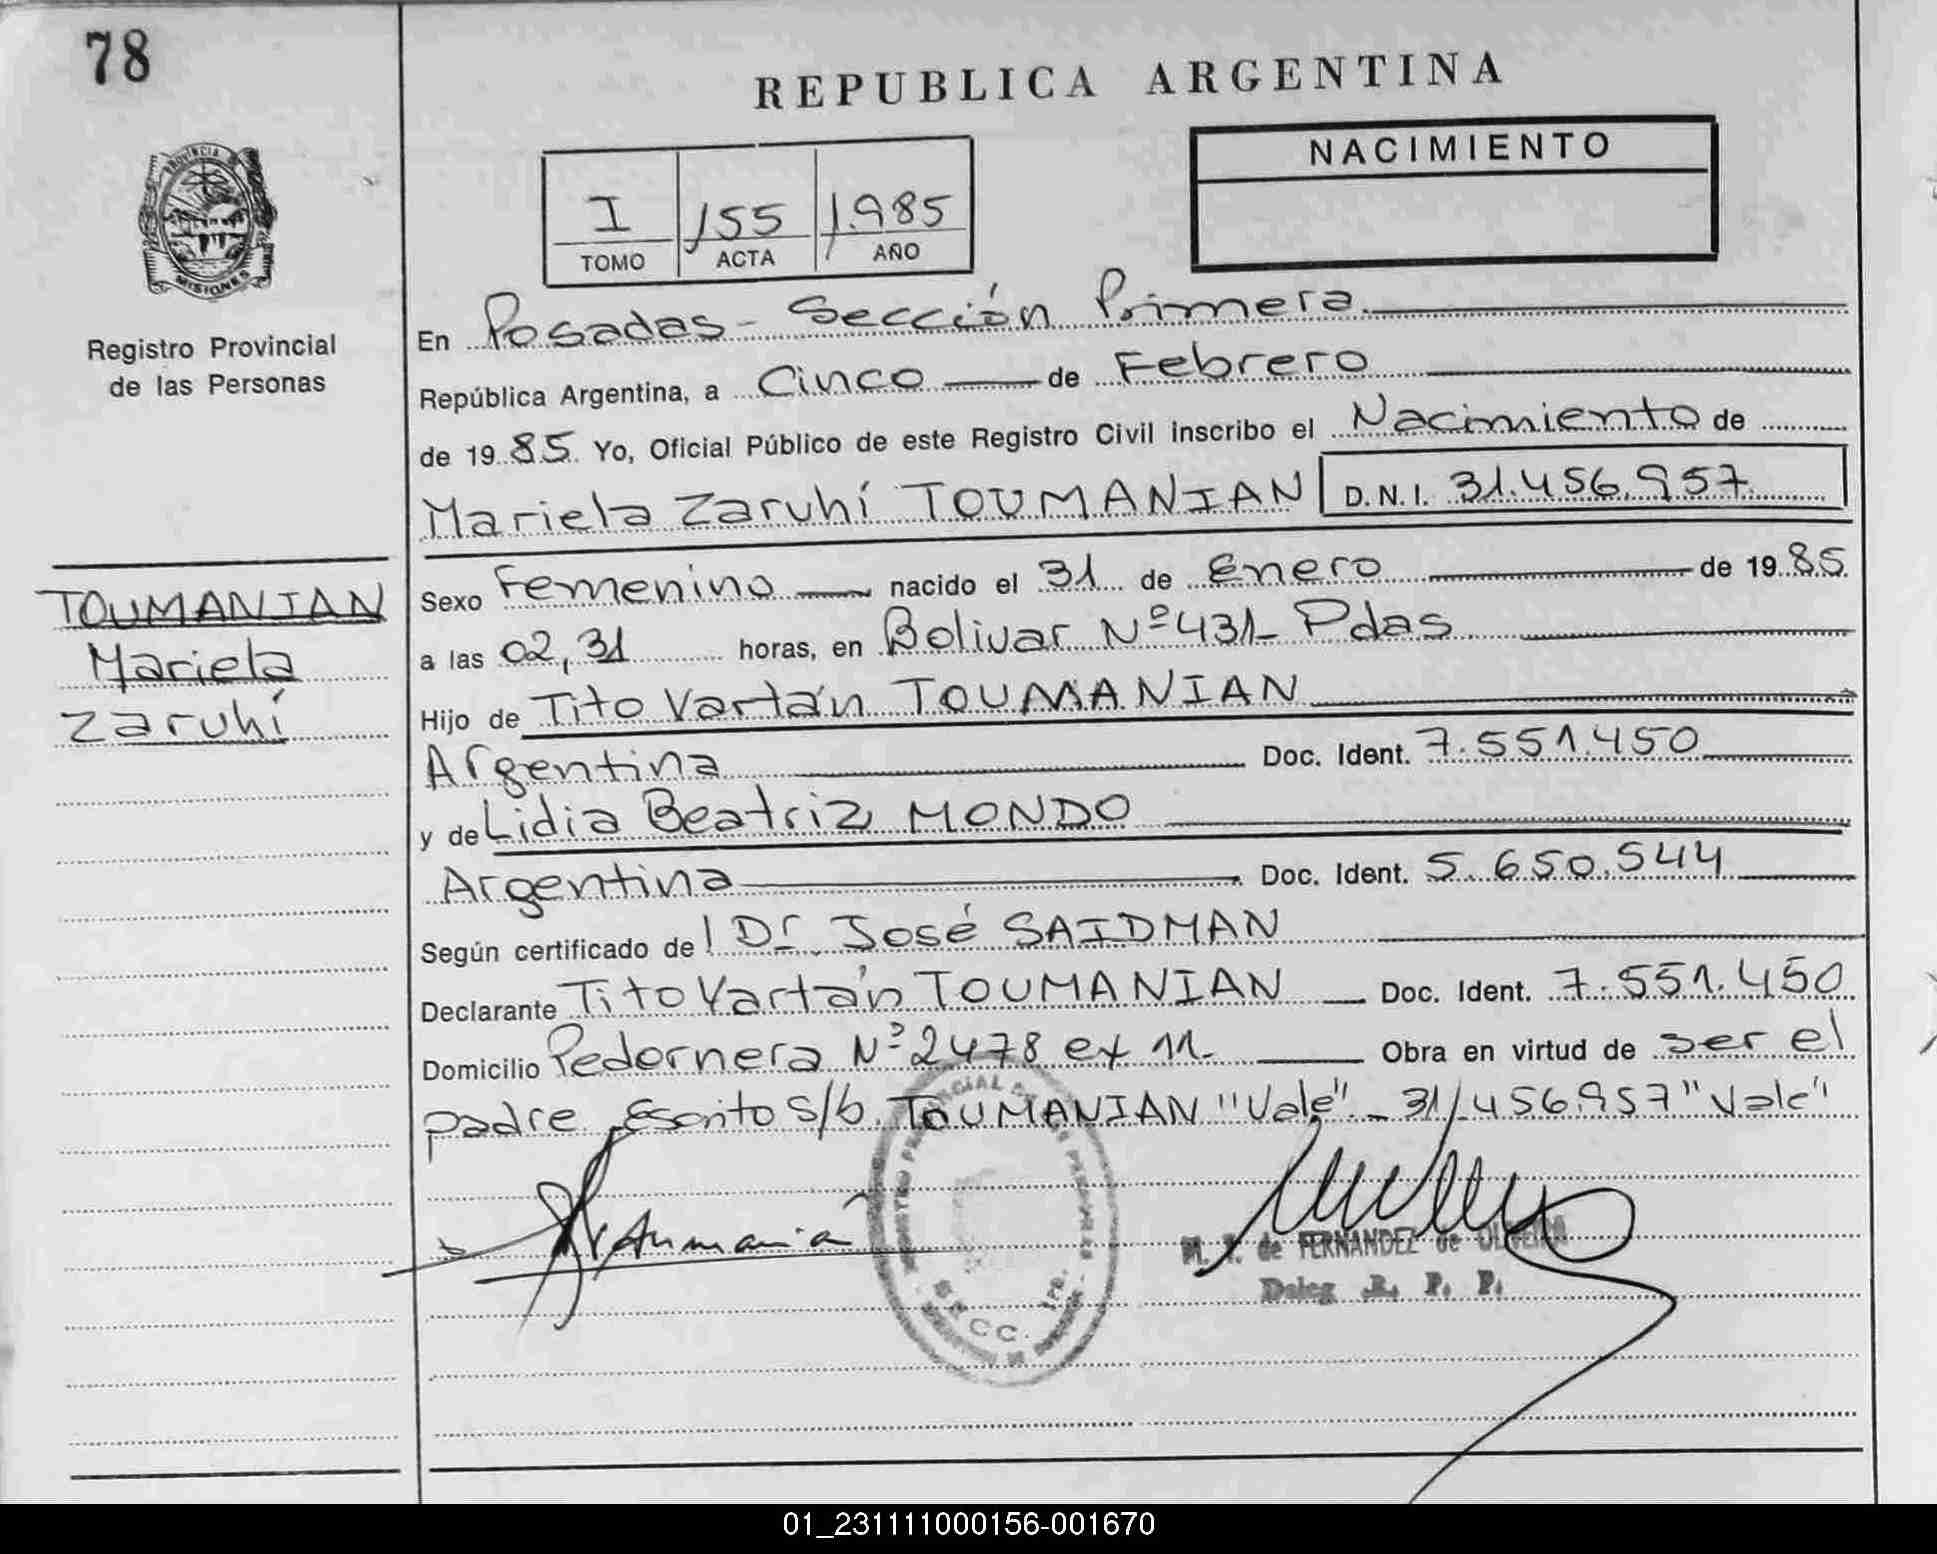 78
REPUBLICA ARGENTINA
NACIMIENTO
I 155 1.985
TOMO ACTA AÑO
PROVINCIA DE
MISIONES
Registro Provincial
de las Personas
En Posadas - Sección Primera
República Argentina, a Cinco de Febrero
de 1985. Yo, Oficial Público de este Registro Civil inscribo el Nacimiento de
Mariela Zaruhí TOUMANIAN D.N.I. 31.456.957
TOUMANIAN
Mariela
Zaruhí
Sexo Femenino nacido el 31 de Enero de 1985.
a las 02,31 horas, en Bolivar Nº 431- Pdas
Hijo de Tito Vartán TOUMANIAN
Argentina Doc. Ident. 7.551.450
y de Lidia Beatriz MONDO
Argentina Doc. Ident. 5.650.544
Según certificado de Dr José SAIDMAN
Declarante Tito Vartán TOUMANIAN Doc. Ident. 7.551.450
Domicilio Pedernera Nº 2478 ex 11- Obra en virtud de ser el
padre Escrito s/b. TOUMANIAN "Vale" - 31/456957 "Vale"
M. de FERNANDEZ de OLIVEIRA
Deleg. R. P. P.
SECC. 1ra.
01_231111000156-001670